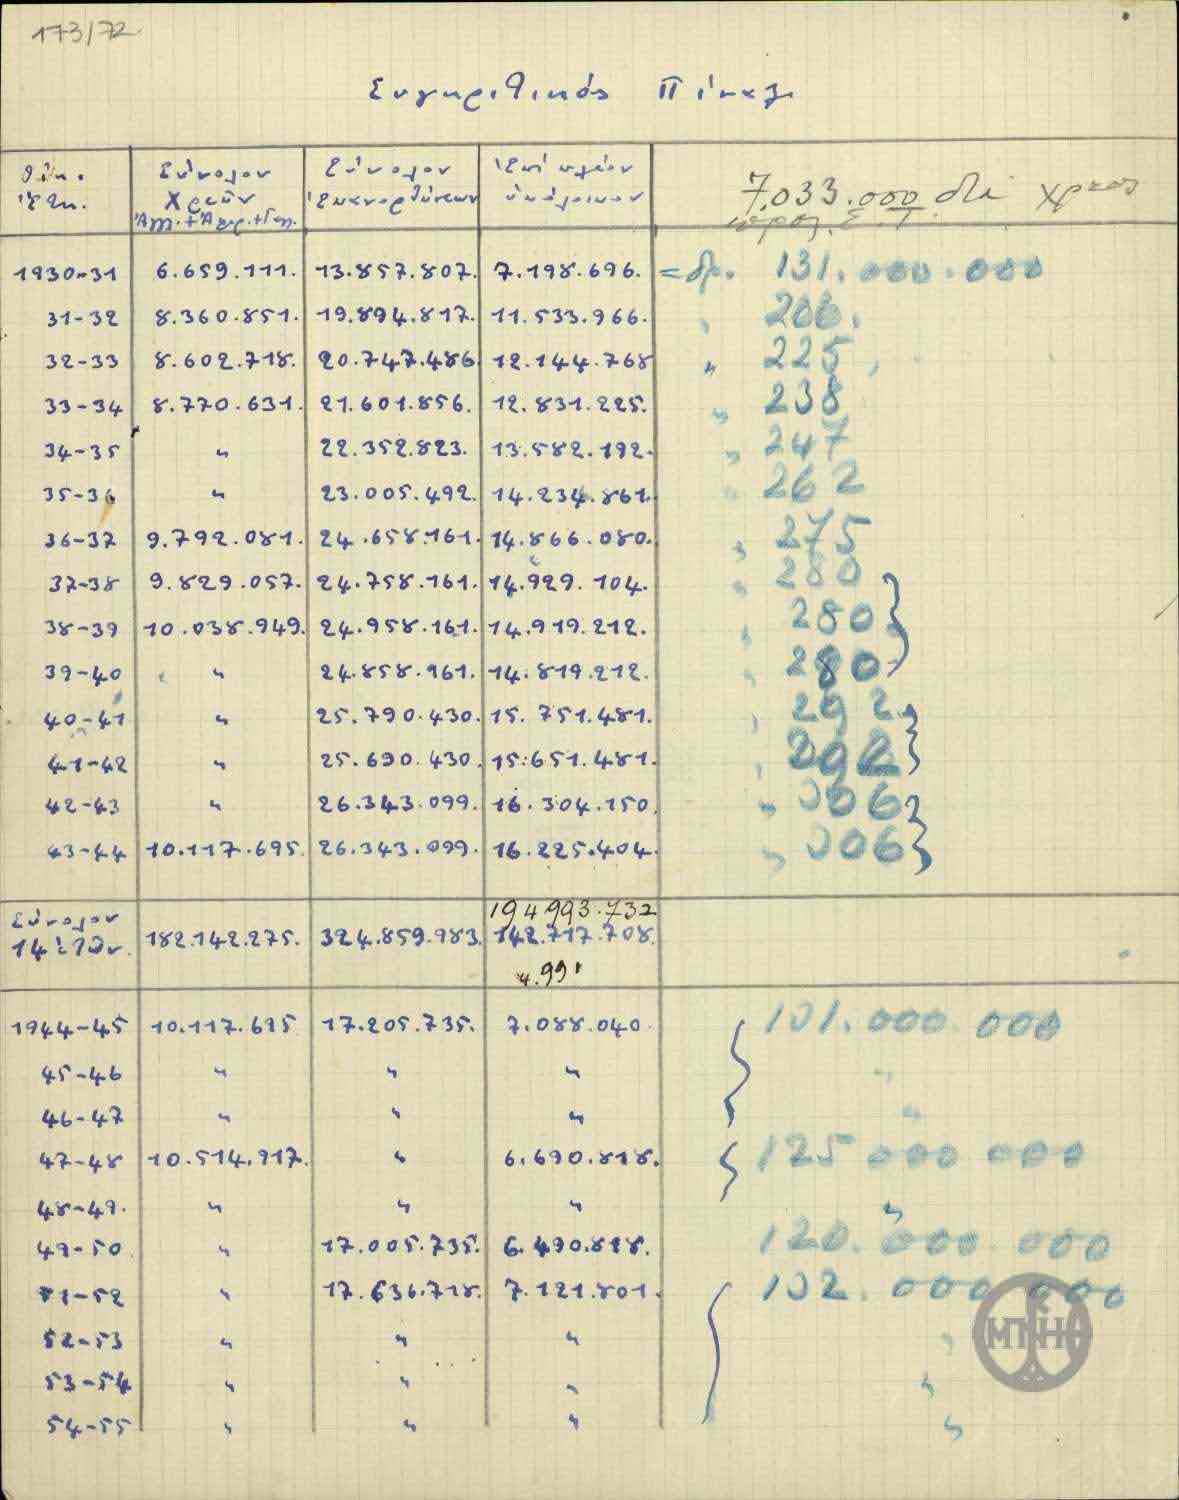 173/72
Συγκριτικός Πίναξ
Οἰκ. Σύνολον Σύνολον Ἐπί πλέον
Ἔτη. Χρεῶν ὑπόλοιπον 7.033.000 διά χρέος
1930-31 6.659.111. 13.857.807. 7.198.696. = δρ. 131.000.000
31-32 8.360.851. 19.894.817. 11.533.966. " 206.
32-33 8.602.718. 20.747.486 12.144.768 " 225
33-34 8.770.631. 21.601.856. 12.831.225. " 238
34-35 " 22.352.823. 13.582.192. " 247
35-36 " 23.005.492. 14.234.861. " 262
36-37 9.792.081. 24.658.161. 14.866.080. " 275
37-38 9.829.057. 24.758.161. 14.929.104. " 280
38-39 10.038.949. 24.958.161. 14.919.212. " 280
39-40 " 24.858.161. 14.819.212. " 280
40-41 " 25.790.430. 15.751.481. " 292
41-42 " 25.690.430. 15.651.481. " 292
42-43 " 26.343.099. 16.304.150. " 306
43-44 10.117.695. 26.343.099. 16.225.404. " 306
194993.732
Σύνολον
14 ἐτῶν. 182.142.275. 324.859.983. 142.717.708.
4.991
1944-45 10.117.695 17.205.735. 7.088.040. 101.000.000
45-46 " " " "
46-47 " " " "
47-48 10.514.917. " 6.690.818. 125 000 000
48-49. " " " "
49-50 " 17.005.735. 6.490.818. 120.000.000
51-52 " 17.636.718. 7.121.801. 102.000.000
52-53 " " " "
53-54 " " " "
54-55 " " " "